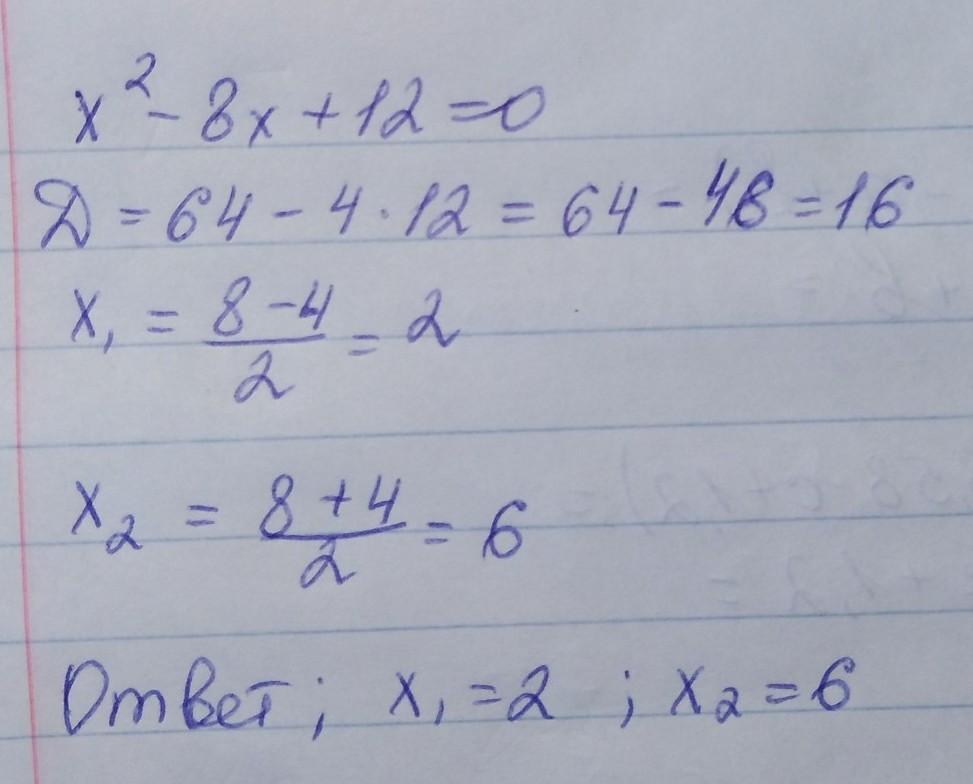 x² - 8x + 12 = 0
Д = 64 - 4 · 12 = 64 - 48 = 16
x₁ = (8 - 4)/2 = 2
x₂ = (8 + 4)/2 = 6
Ответ; x₁ = 2 ; x₂ = 6